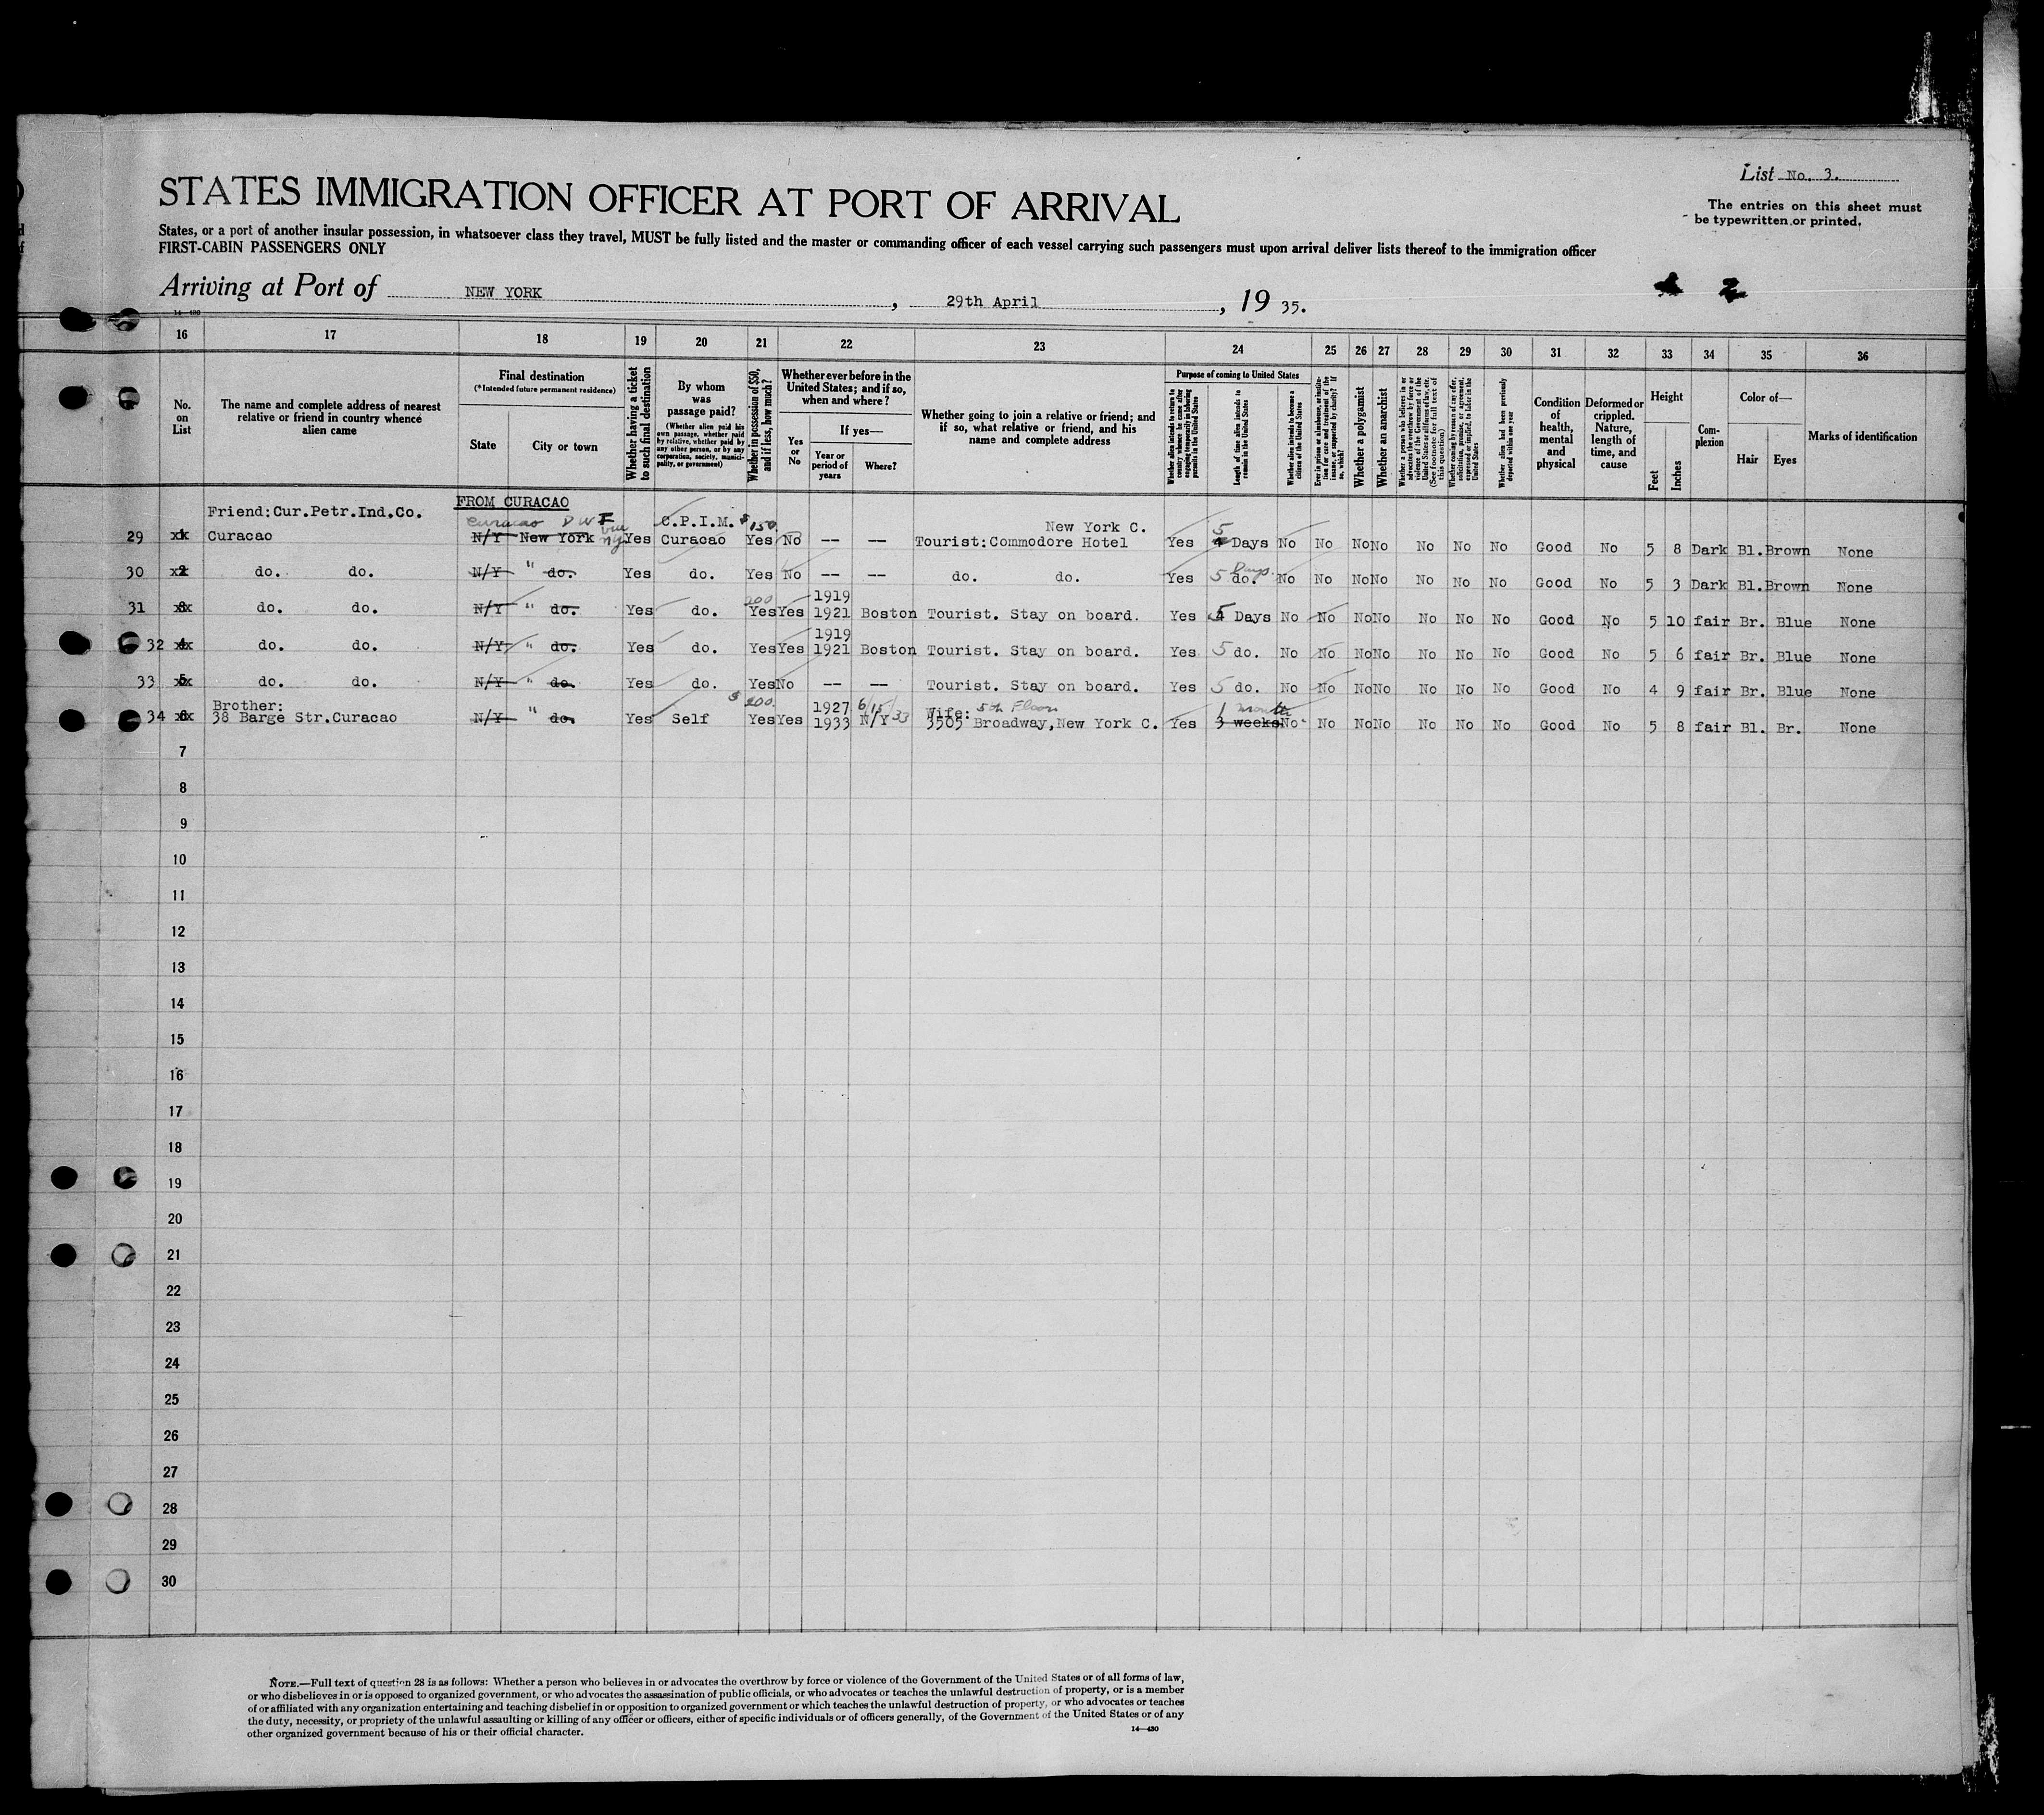 List No. 3.
The entries on this sheet must
be typewritten or printed.
STATES IMMIGRATION OFFICER AT PORT OF ARRIVAL
States, or a port of another insular possession, in whatsoever class they travel, MUST be fully listed and the master or commanding officer of each vessel carrying such passengers must upon arrival deliver lists thereof to the immigration officer
FIRST-CABIN PASSENGERS ONLY
Arriving at Port of NEW YORK, 29th April, 1935.
14—430
16 17 18 19 20 21 22 23 24 25 26 27 28 29 30 31 32 33 34 35 36
No. on List
The name and complete address of nearest relative or friend in country whence alien came
Final destination
(*Intended future permanent residence)
State
City or town
Whether having a ticket to such final destination
By whom was passage paid?
(Whether alien paid his own passage, whether paid by relative, whether paid by any other person, or by any corporation, society, municipality, or government)
Whether in possession of $50, and if less, how much?
Whether ever before in the United States; and if so, when and where?
Yes or No
If yes—
Year or period of years
Where?
Whether going to join a relative or friend; and if so, what relative or friend, and his name and complete address
Purpose of coming to United States
Whether alien intends to return to country whence he came after engaging temporarily in laboring pursuits in the United States
Length of time alien intends to remain in the United States
Whether alien intends to become a citizen of the United States
Ever in prison or almshouse, or institution for care and treatment of the insane, or supported by charity? If so, which?
Whether a polygamist
Whether an anarchist
Whether a person who believes in or advocates the overthrow by force or violence of the Government of the United States or all forms of law, etc. (See footnote for full text of this question)
Whether coming by reason of any offer, solicitation, promise, or agreement, expressed or implied, to labor in the United States
Whether alien had been previously deported within one year
Condition of health, mental and physical
Deformed or crippled. Nature, length of time, and cause
Height
Feet
Inches
Complexion
Color of—
Hair
Eyes
Marks of identification
FROM CURACAO
Friend:Cur.Petr.Ind.Co. Curacao DWI C.P.I.M. $150 New York C. 5
29 1 Curacao N/Y New York via NY Yes Curacao Yes No -- -- Tourist:Commodore Hotel Yes 4 Days No No No No No No No Good No 5 8 Dark Bl. Brown None
30 2 do. do. N/Y " do. Yes do. Yes No -- -- do. do. Yes 5 do. Days No No No No No No No Good No 5 3 Dark Bl. Brown None
200 1919
31 3 do. do. N/Y " do. Yes do. Yes Yes 1921 Boston Tourist. Stay on board. Yes 5 Days No No No No No No No Good No 5 10 fair Br. Blue None
1919
32 4 do. do. N/Y " do. Yes do. Yes Yes 1921 Boston Tourist. Stay on board. Yes 5 do. No No No No No No No Good No 5 6 fair Br. Blue None
33 5 do. do. N/Y " do. Yes do. Yes No -- -- Tourist. Stay on board. Yes 5 do. No No No No No No No Good No 4 9 fair Br. Blue None
Brother: $ 200. 1927 6/15/33 Wife: 5th Floor 1 month
34 6 38 Barge Str.Curacao N/Y " do. Yes Self Yes Yes 1933 N/Y 3505 Broadway,New York C. Yes 3 weeks No No No No No No No Good No 5 8 fair Bl. Br. None
7
8
9
10
11
12
13
14
15
16
17
18
19
20
21
22
23
24
25
26
27
28
29
30
NOTE.—Full text of question 28 is as follows: Whether a person who believes in or advocates the overthrow by force or violence of the Government of the United States or of all forms of law,
or who disbelieves in or is opposed to organized government, or who advocates the assassination of public officials, or who advocates or teaches the unlawful destruction of property, or is a member
of or affiliated with any organization entertaining and teaching disbelief in or opposition to organized government or which teaches the unlawful destruction of property, or who advocates or teaches
the duty, necessity, or propriety of the unlawful assaulting or killing of any officer or officers, either of specific individuals or of officers generally, of the Government of the United States or of any
other organized government because of his or their official character.
14—430